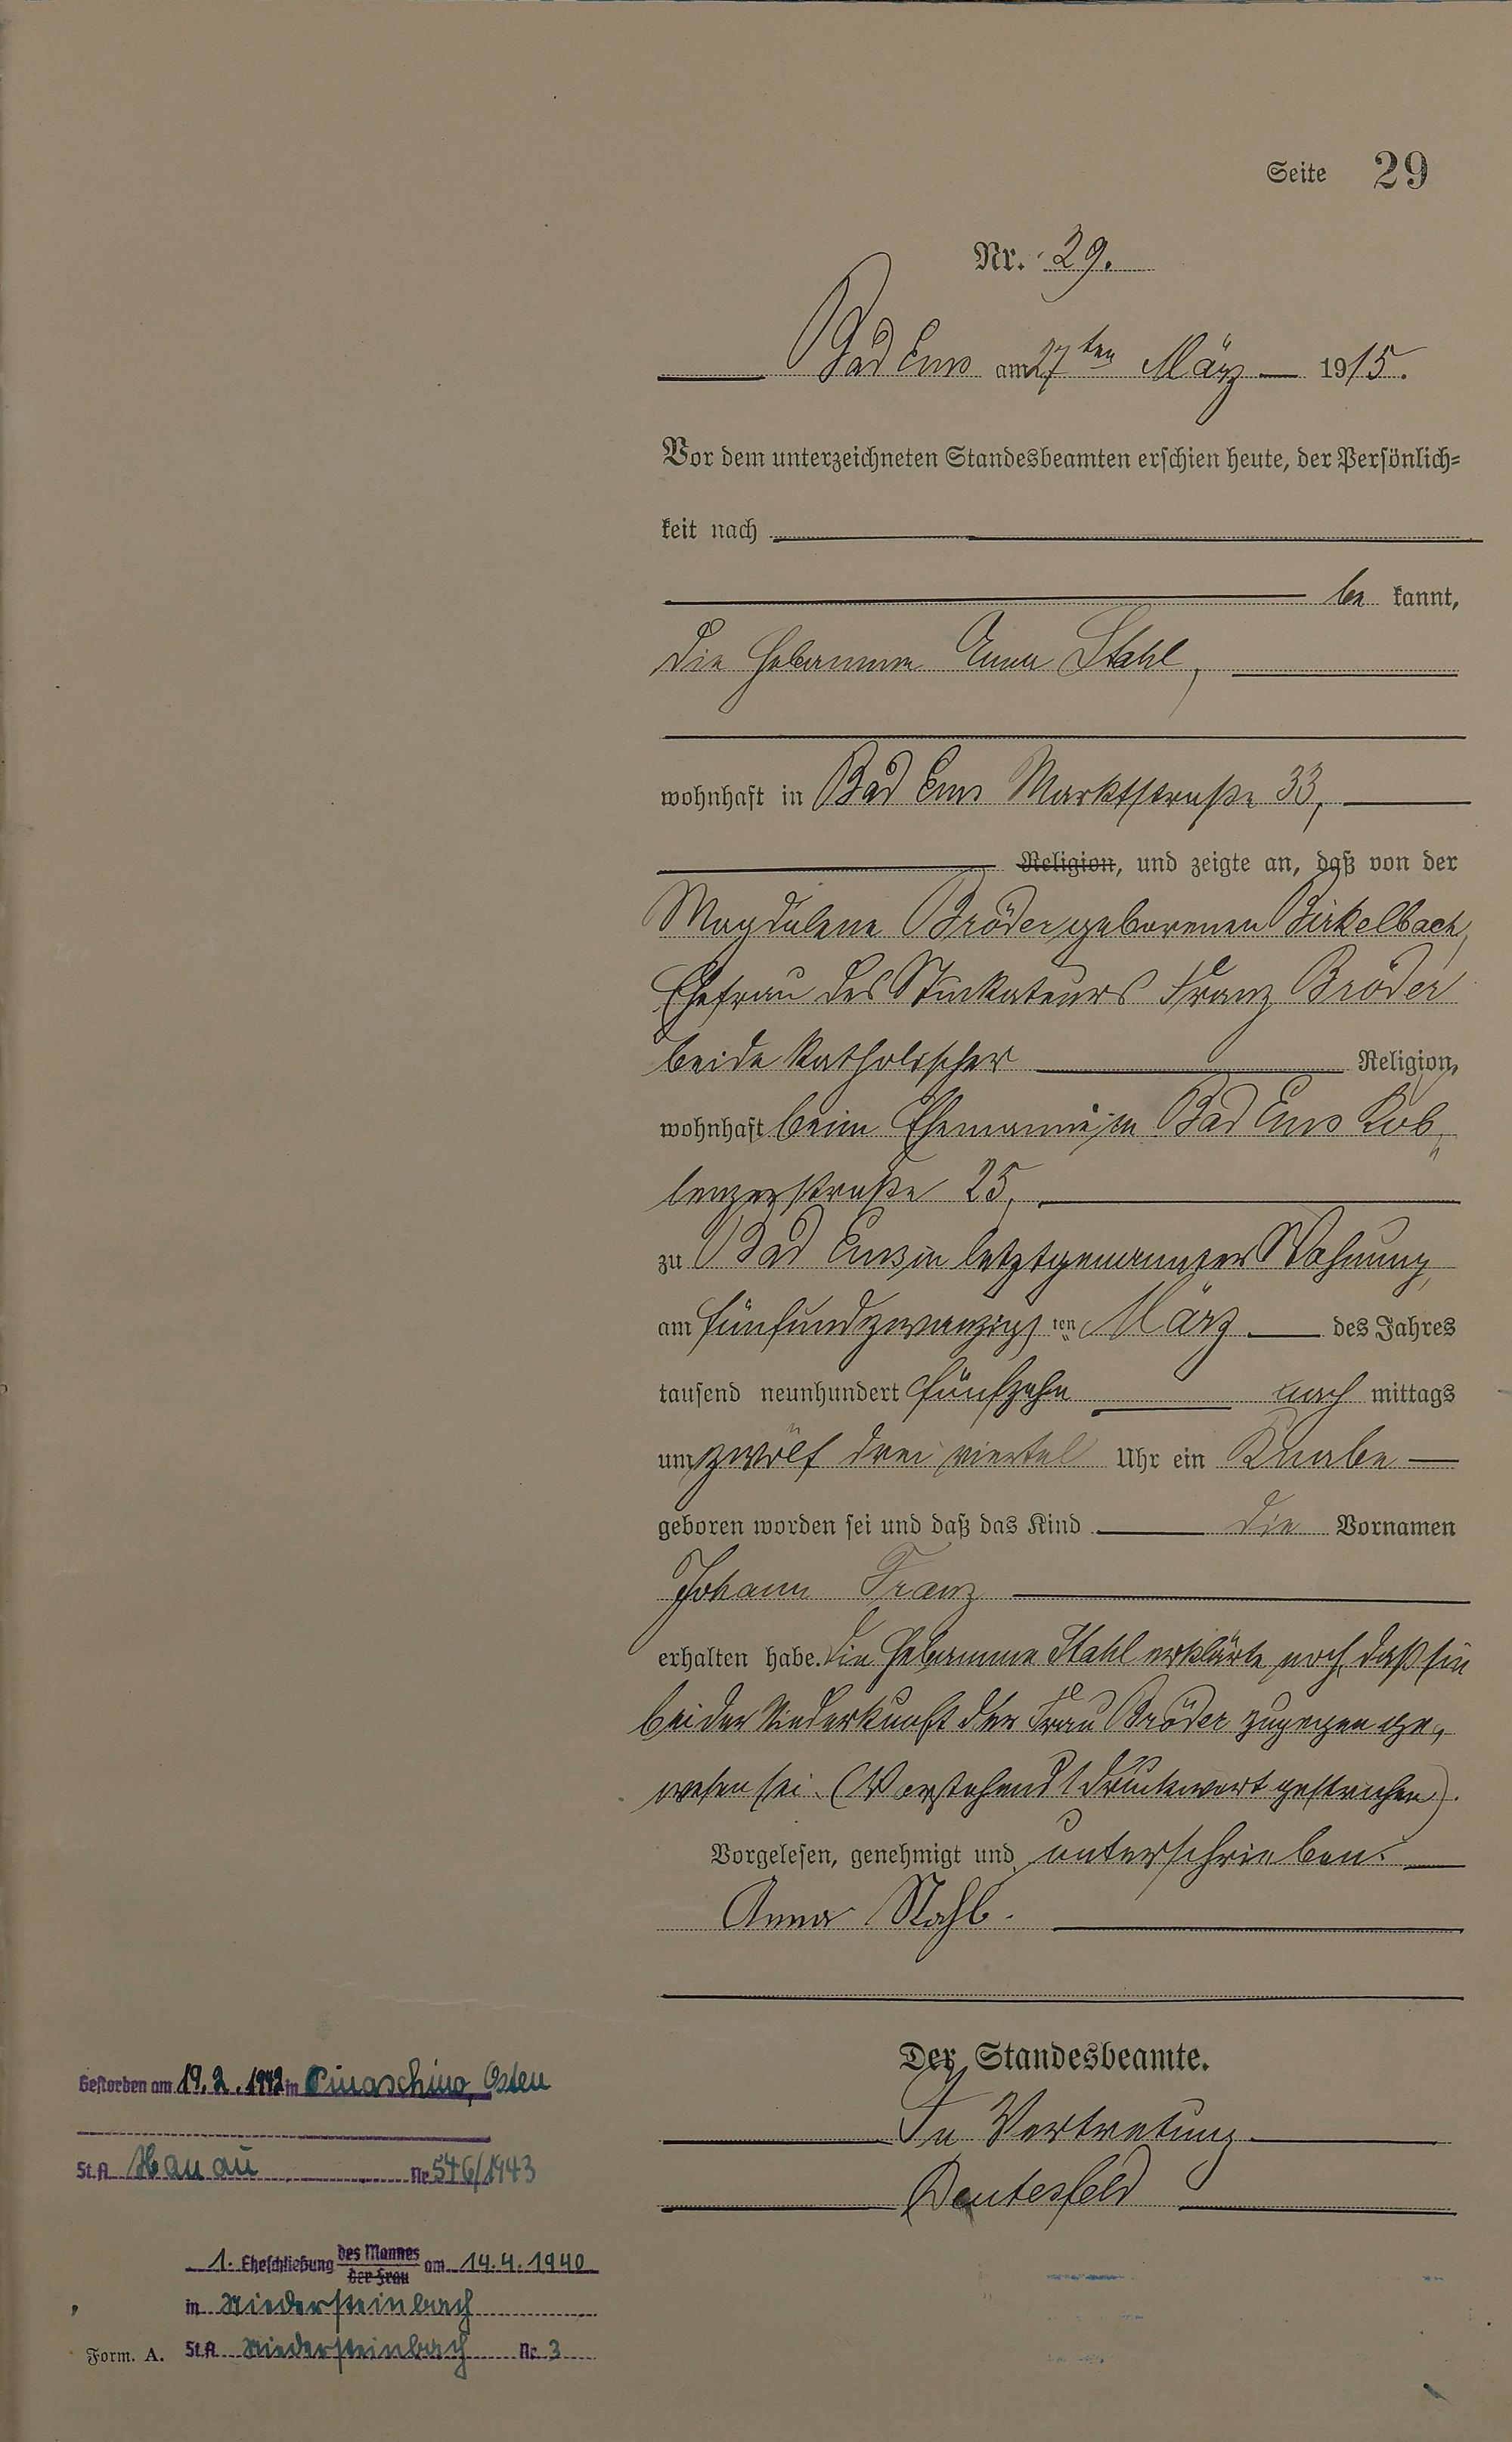 Seite 29
Nr. 29.
Bad Ems am 27ten März 1915.
Vor dem unterzeichneten Standesbeamten erschien heute, der Persönlich=
keit nach
be kannt,
die Hebamme Anna Stahl,
wohnhaft in Bad Ems Marktstraße 33,
Religion, und zeigte an, daß von der
Magdalene Bröder geborenen Birkelbach,
Ehefrau des Stuckateurs Franz Bröder
beide katholischer Religion,
wohnhaft beim Ehemanne in Bad Ems Kob„
lenzerstraße 25,
zu Bad Ems in letztgenannter Wohnung
am fünfundzwanzigsten März des Jahres
tausend neunhundert fünfzehn nach mittags
um zwölf drei viertel Uhr ein Knabe
geboren worden sei und daß das Kind die Vornamen
Johann Franz
erhalten habe. Die Hebamme Stahl erklärte noch, daß sie
bei der Niederkunft der Frau Bröder zugegen ge„
wesen sei. (Vorstehend 1 Druckwort gestrichen).
Vorgelesen, genehmigt und unterschrieben.
Anna Stahl.
Der Standesbeamte.
In Vertretung
Deutesfeld
Gestorben am 19.2.1942 in Pinaschino, Osten
St.A. Hanau Nr. 546/1943
1. Eheschließung des Mannes am 14.4.1940
der Frau
in Niedersteinbach
Form. A. St.A. Niedersteinbach Nr. 3